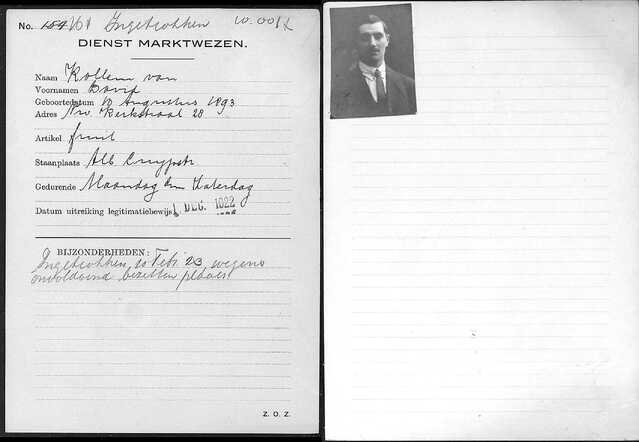 No. 184 Ingetrokken
DIENST MARKTWEZEN.
Naam Kollem van
Voornamen David
Geboortedatum 10 Augustus 1893
Adres Nw. Kerkstraat 28
Artikel fruit
Staanplaats Alb Cuypstr
Gedurende Maandag t/m Zaterdag
Datum uitreiking legitimatiebewijs DEC. 1922
BIJZONDERHEDEN:
Ingetrokken 10 Febr 23 wegens
onvoldoend bezetten plaats
Z. O. Z.